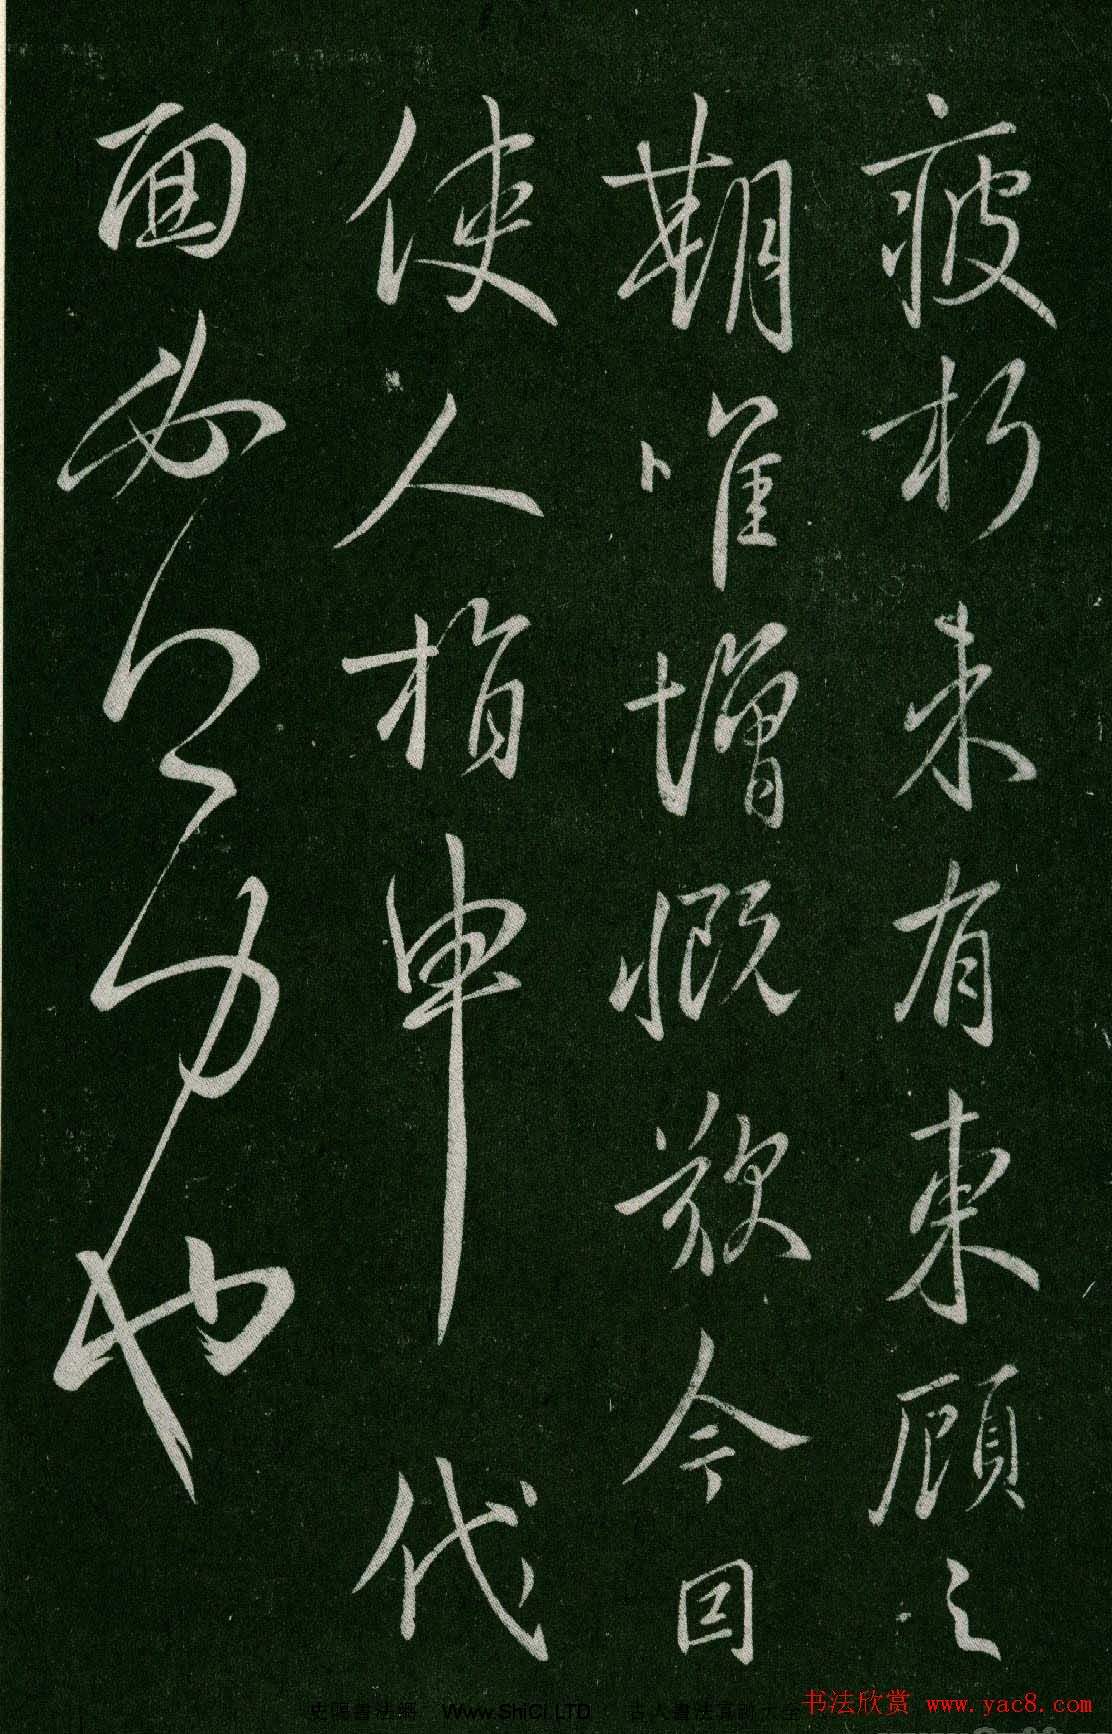 疲朽未有東顧之
期唯增慨今因
使人指申代
面力也
书法欣赏 www.yac8.com
Www.ShiCi.LTD